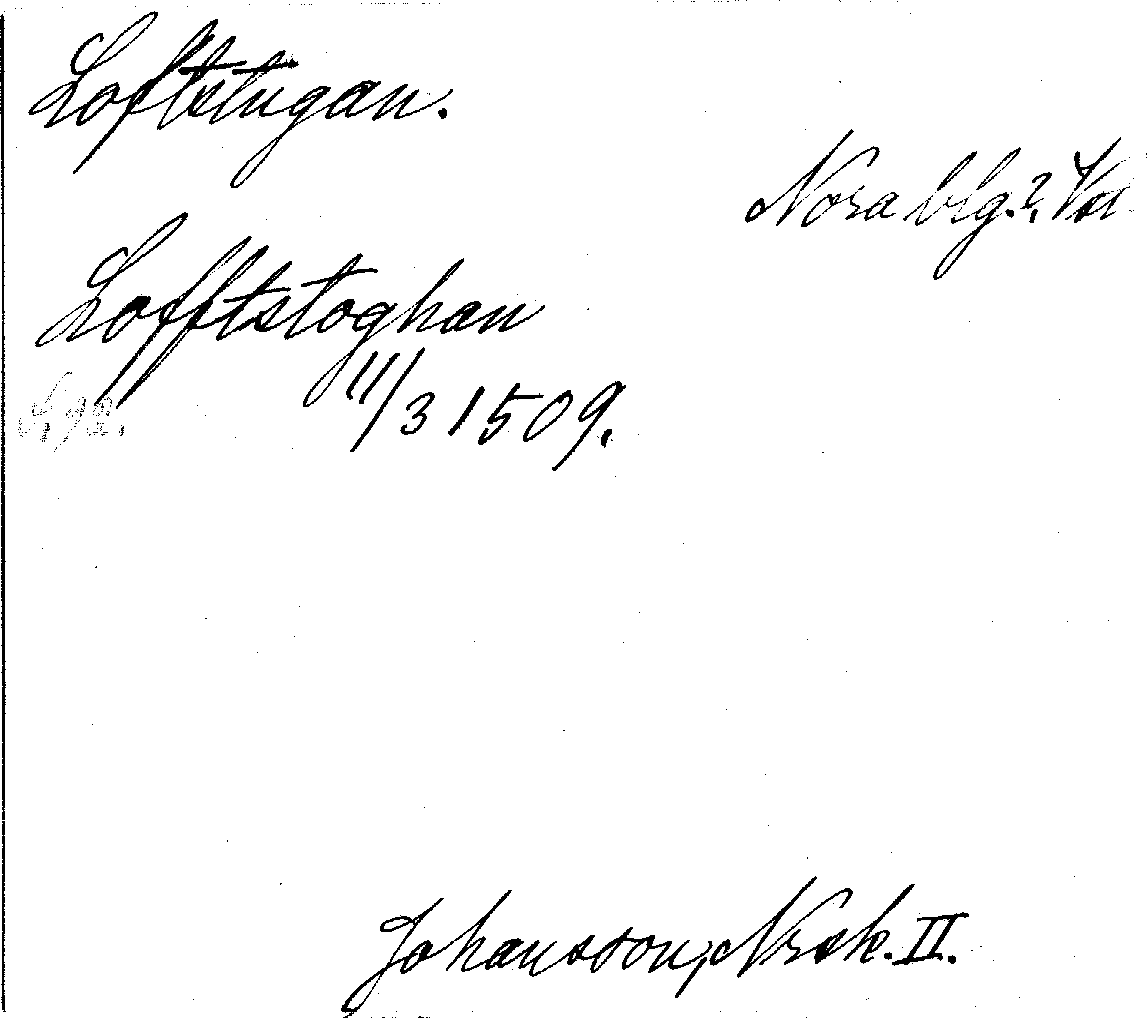 Loftstugan.
Nora blg.?, Vstl
Lofftstoghan
11/3 1509.
Johansson, Nrsk. II.